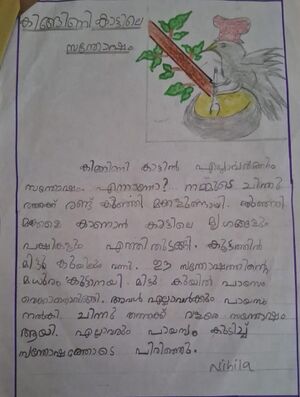 കിങ്ങിണി കാട്ടിലെ
സന്തോഷം
കിങ്ങിണി കാട്ടിൽ എല്ലാവർക്കും
സന്തോഷം എന്നാണോ? നമ്മുടെ ചിന്നു
രണ്ട് കുഞ്ഞി മക്കളുണ്ടായി. കുഞ്ഞി
മക്കളെ കാണാൻ കാട്ടിലെ മൃഗങ്ങളും
പക്ഷികളും എത്തിതുടങ്ങി. കൂട്ടത്തിൽ
മിട്ടു കുയിലും വന്നു. ഈ സന്തോഷത്തിൻ്റെ
മധുരം കൂട്ടണ്ടെ. മിട്ടു കുയിൽ പായസം
അവൾ എല്ലാവർക്കും പായസം
നൽകി. ചിന്നു തത്തക്ക് വളരെ സന്തോഷം
ആയി. എല്ലാവരും പായസം കുടിച്ച്
സന്തോഷത്തോടെ പിരിഞ്ഞു.
Nikila